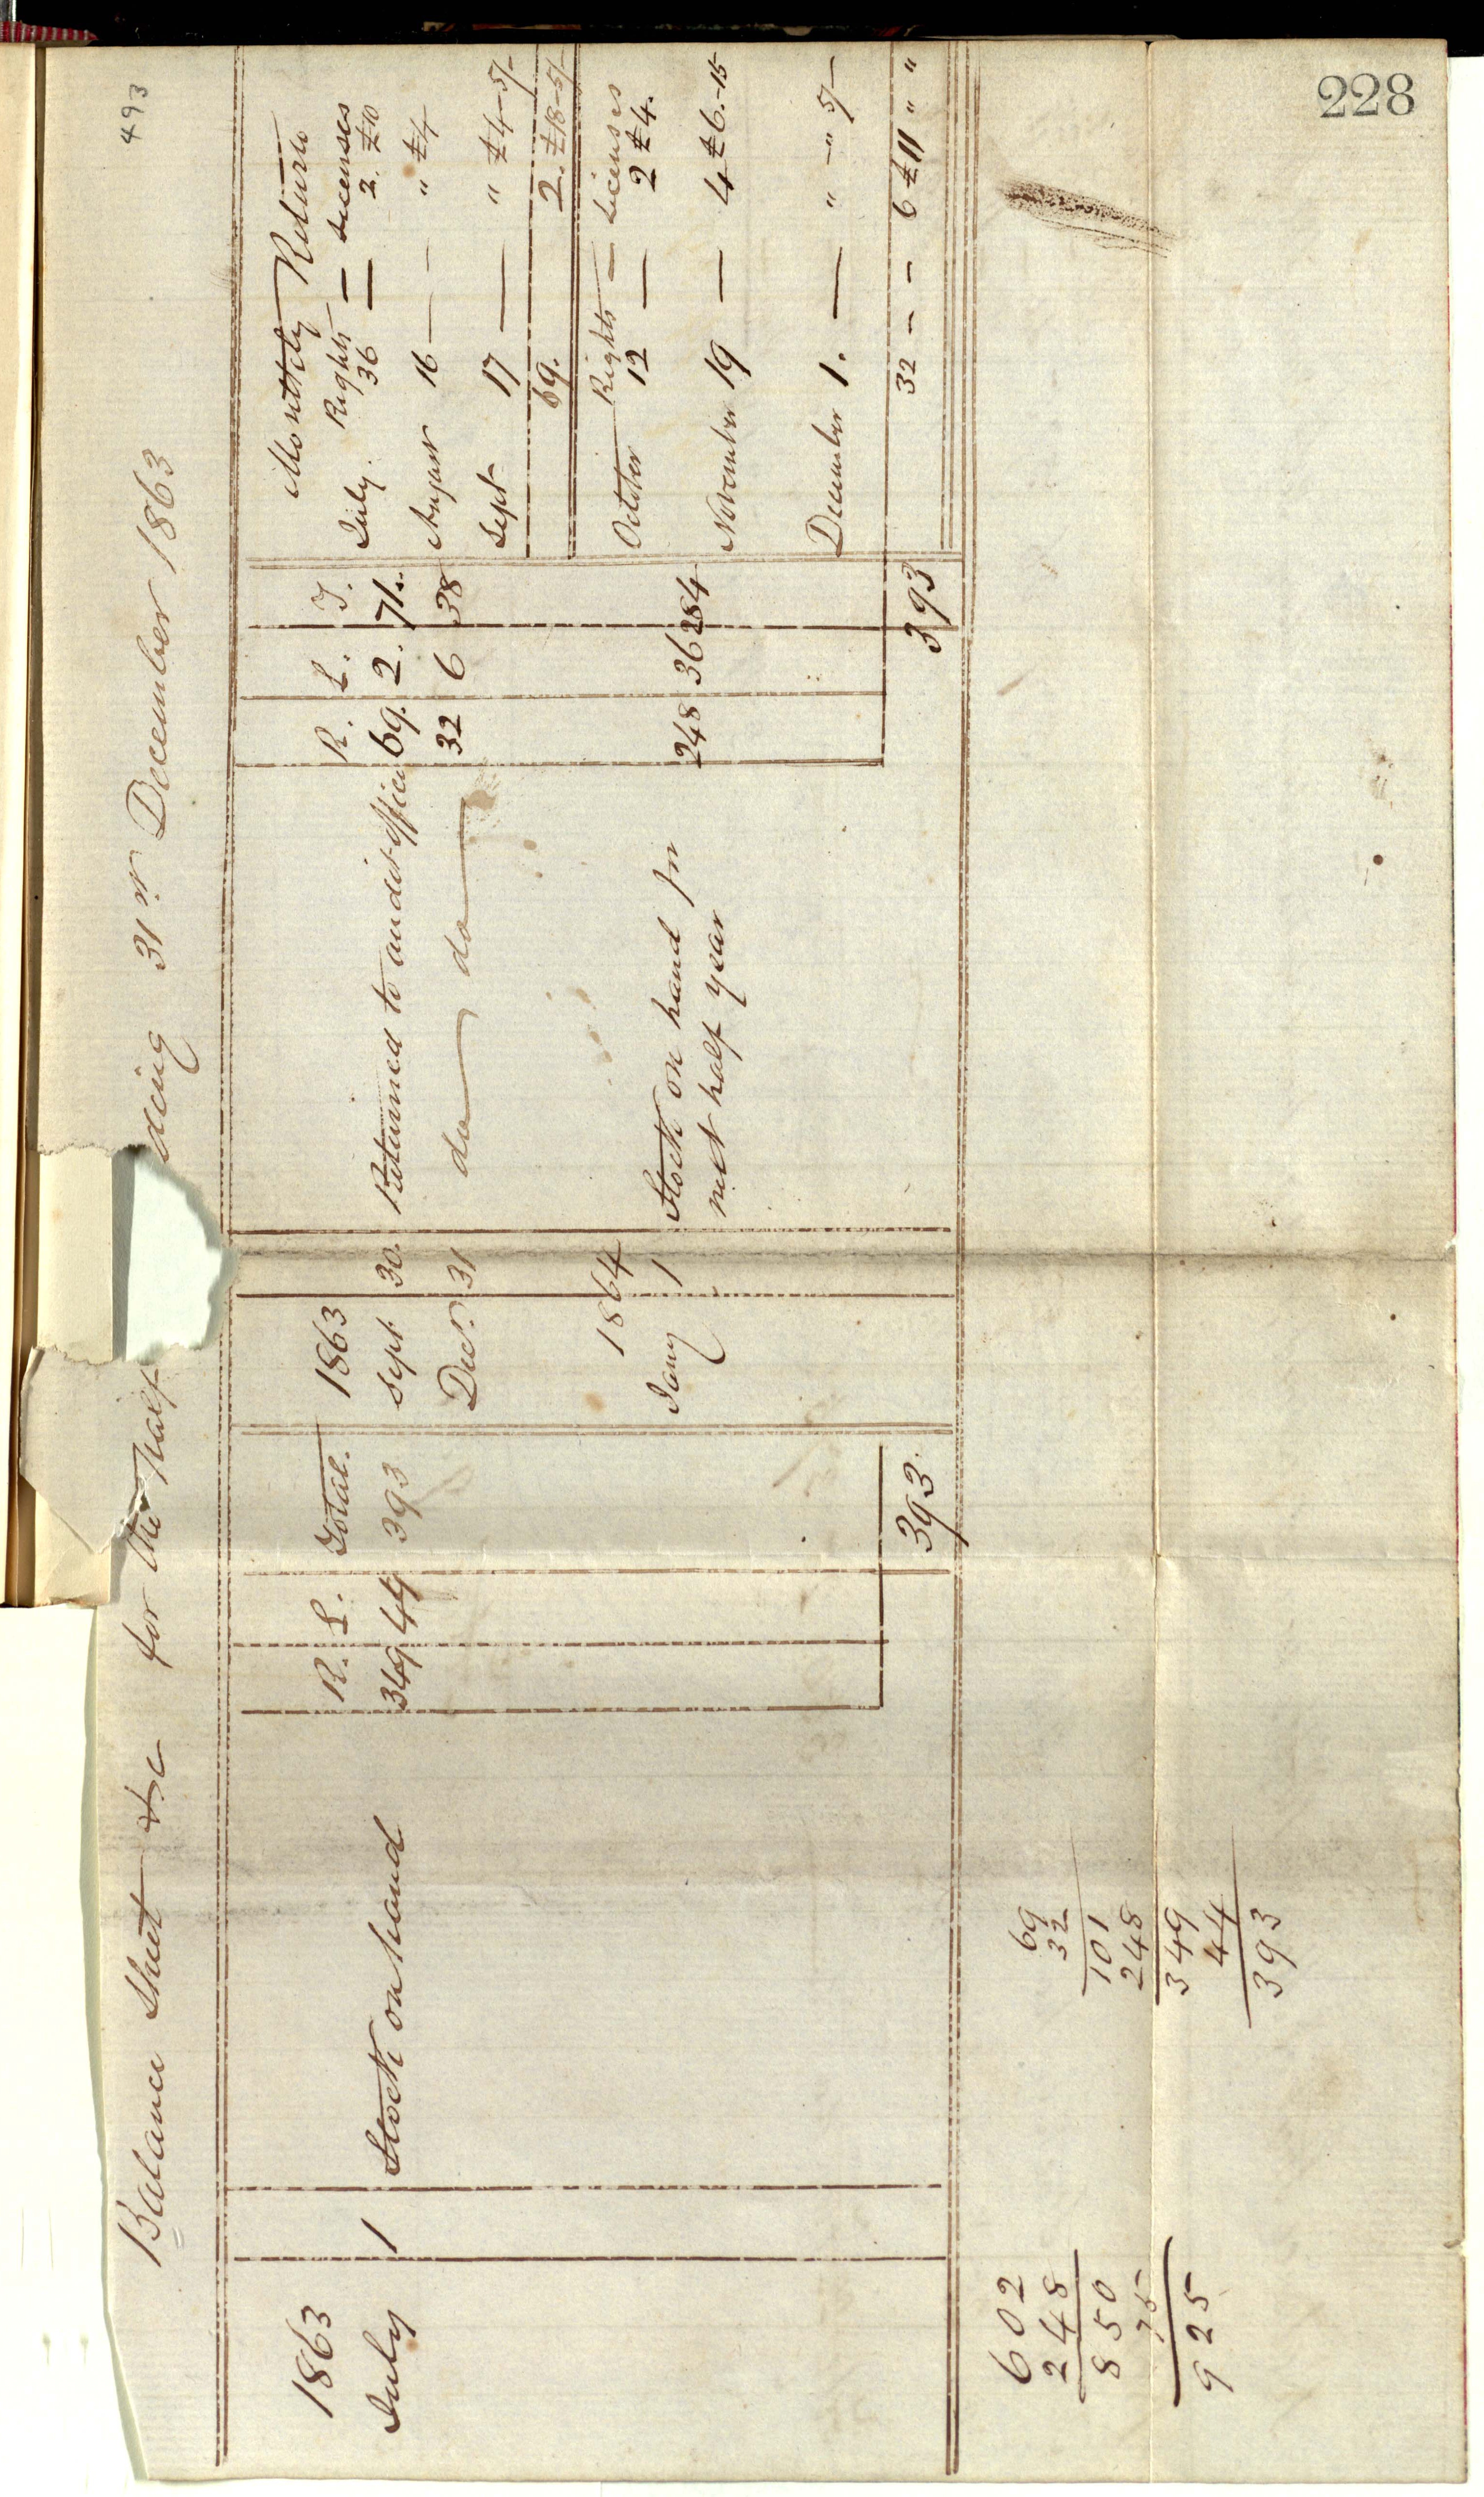 493
228
Balance Sheet &c for the half ding 31st December 1863
1863
July 1 Stock on hand
R. L. Total.
349 44 393
393
1863
Sept 30. Returned to audit office
R. L. T.
69. 2. 71.
Decr. 31 do do 32 6 38
1864
Jany 1 Stock on hand for 248 36 284
next half year
393
Monthly Return
Rights — Licenses
July. 36 — 2. £10
August 16 — " £4
Sept 17 — " £4-5/-
69. 2. £18-5/-
Rights — Licenses
October 12 — 2 £4.
November 19 — 4 £6.-15
December 1. — " - " 5/-
32 - - - 6 £11 " "
602
248
850
75
925
69
32
101
248
349
44
393